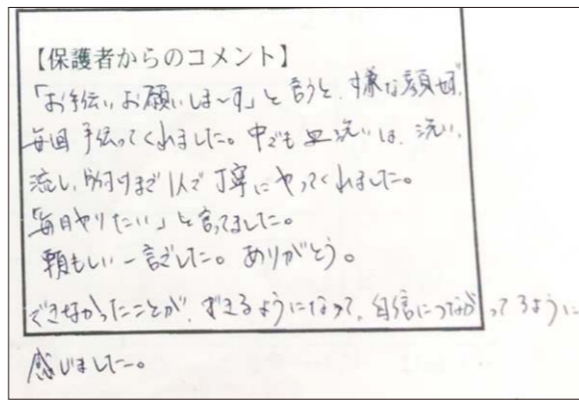 【保護者からのコメント】
「お手伝いお願いしま〜す」と言うと、嫌な顔せず、
毎回手伝ってくれました。中でも皿洗いは、洗い、
流し、片付けまで1人で丁寧にやってくれました。
「毎日やりたい」と言ってました。
頼もしい一言でした。ありがとう。
できなかったことが、できるようになって、自信につながってるように
感じました。